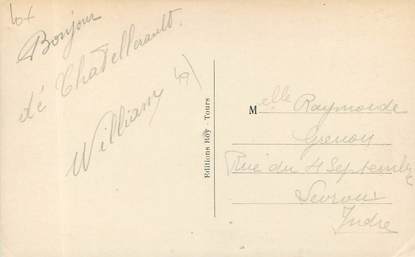 Bonjour
dé Chatellerault.
William
Editions Roy - Tours
Melle Raymonde
Grenon
Rue du 4 Septembre
Levroux
Indre